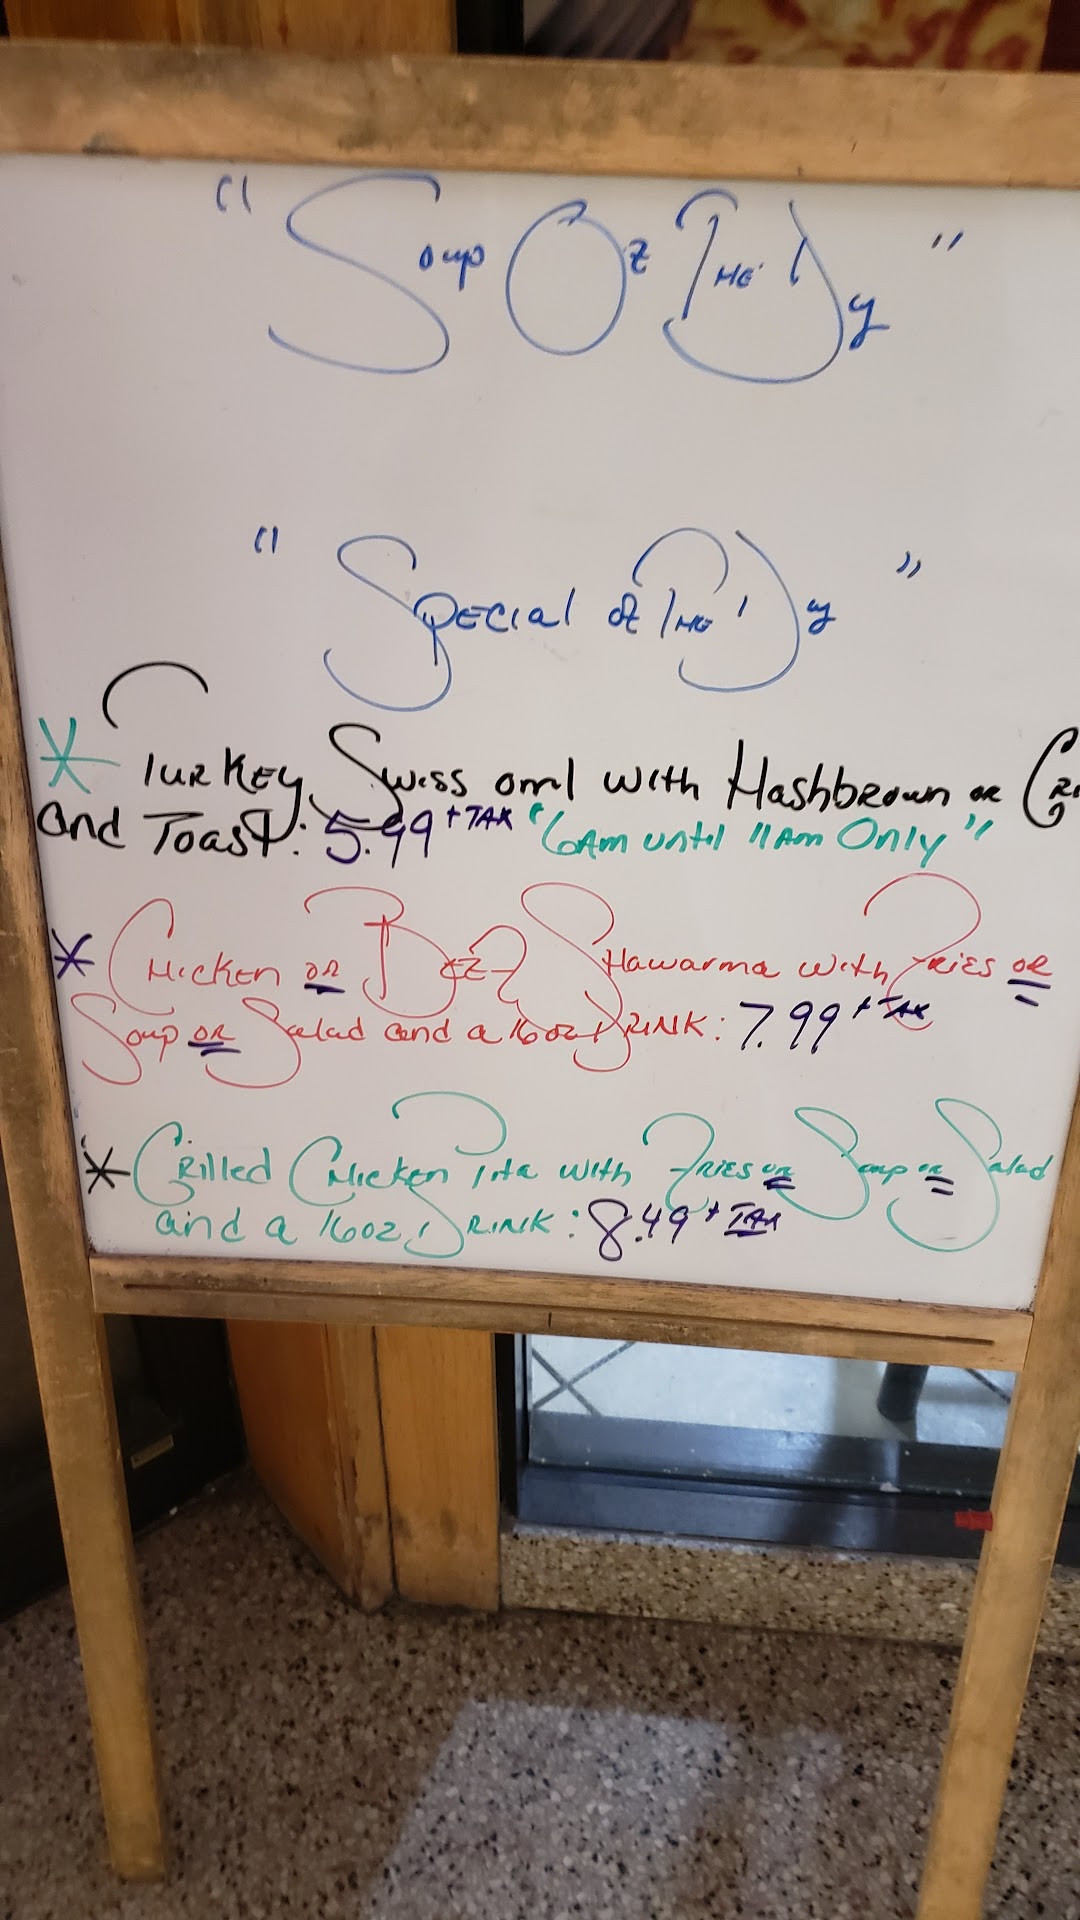 "Soup Of The Day"
"Special of The Day"
* Turkey, Swiss oml with Hashbrown or
and Toast: 5.99 + TAX "6AM until 11AM Only"
* Chicken or Beef Shawarma with Fries or
Soup or Salad and a 16oz. Drink: 7.99 + TAX
* Grilled Chicken Pita with Fries or Soup or Salad
and a 16oz. Drink: 8.49 + TAX